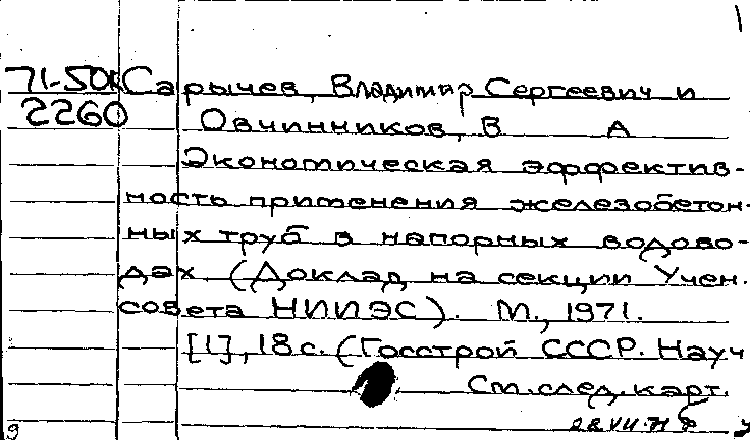 71-50к Сарычев, Владимир Сергеевич и
2260 Овчинников, В А
Экономическая эффектив-
ность применения железобетон-
ных труб в напорных водово-
дах. (Доклад на секции Учен.
совета НИИЭС). М., 1971.
[1], 18 с. (Госстрой СССР. Науч
См. след. карт.
28 VII 71